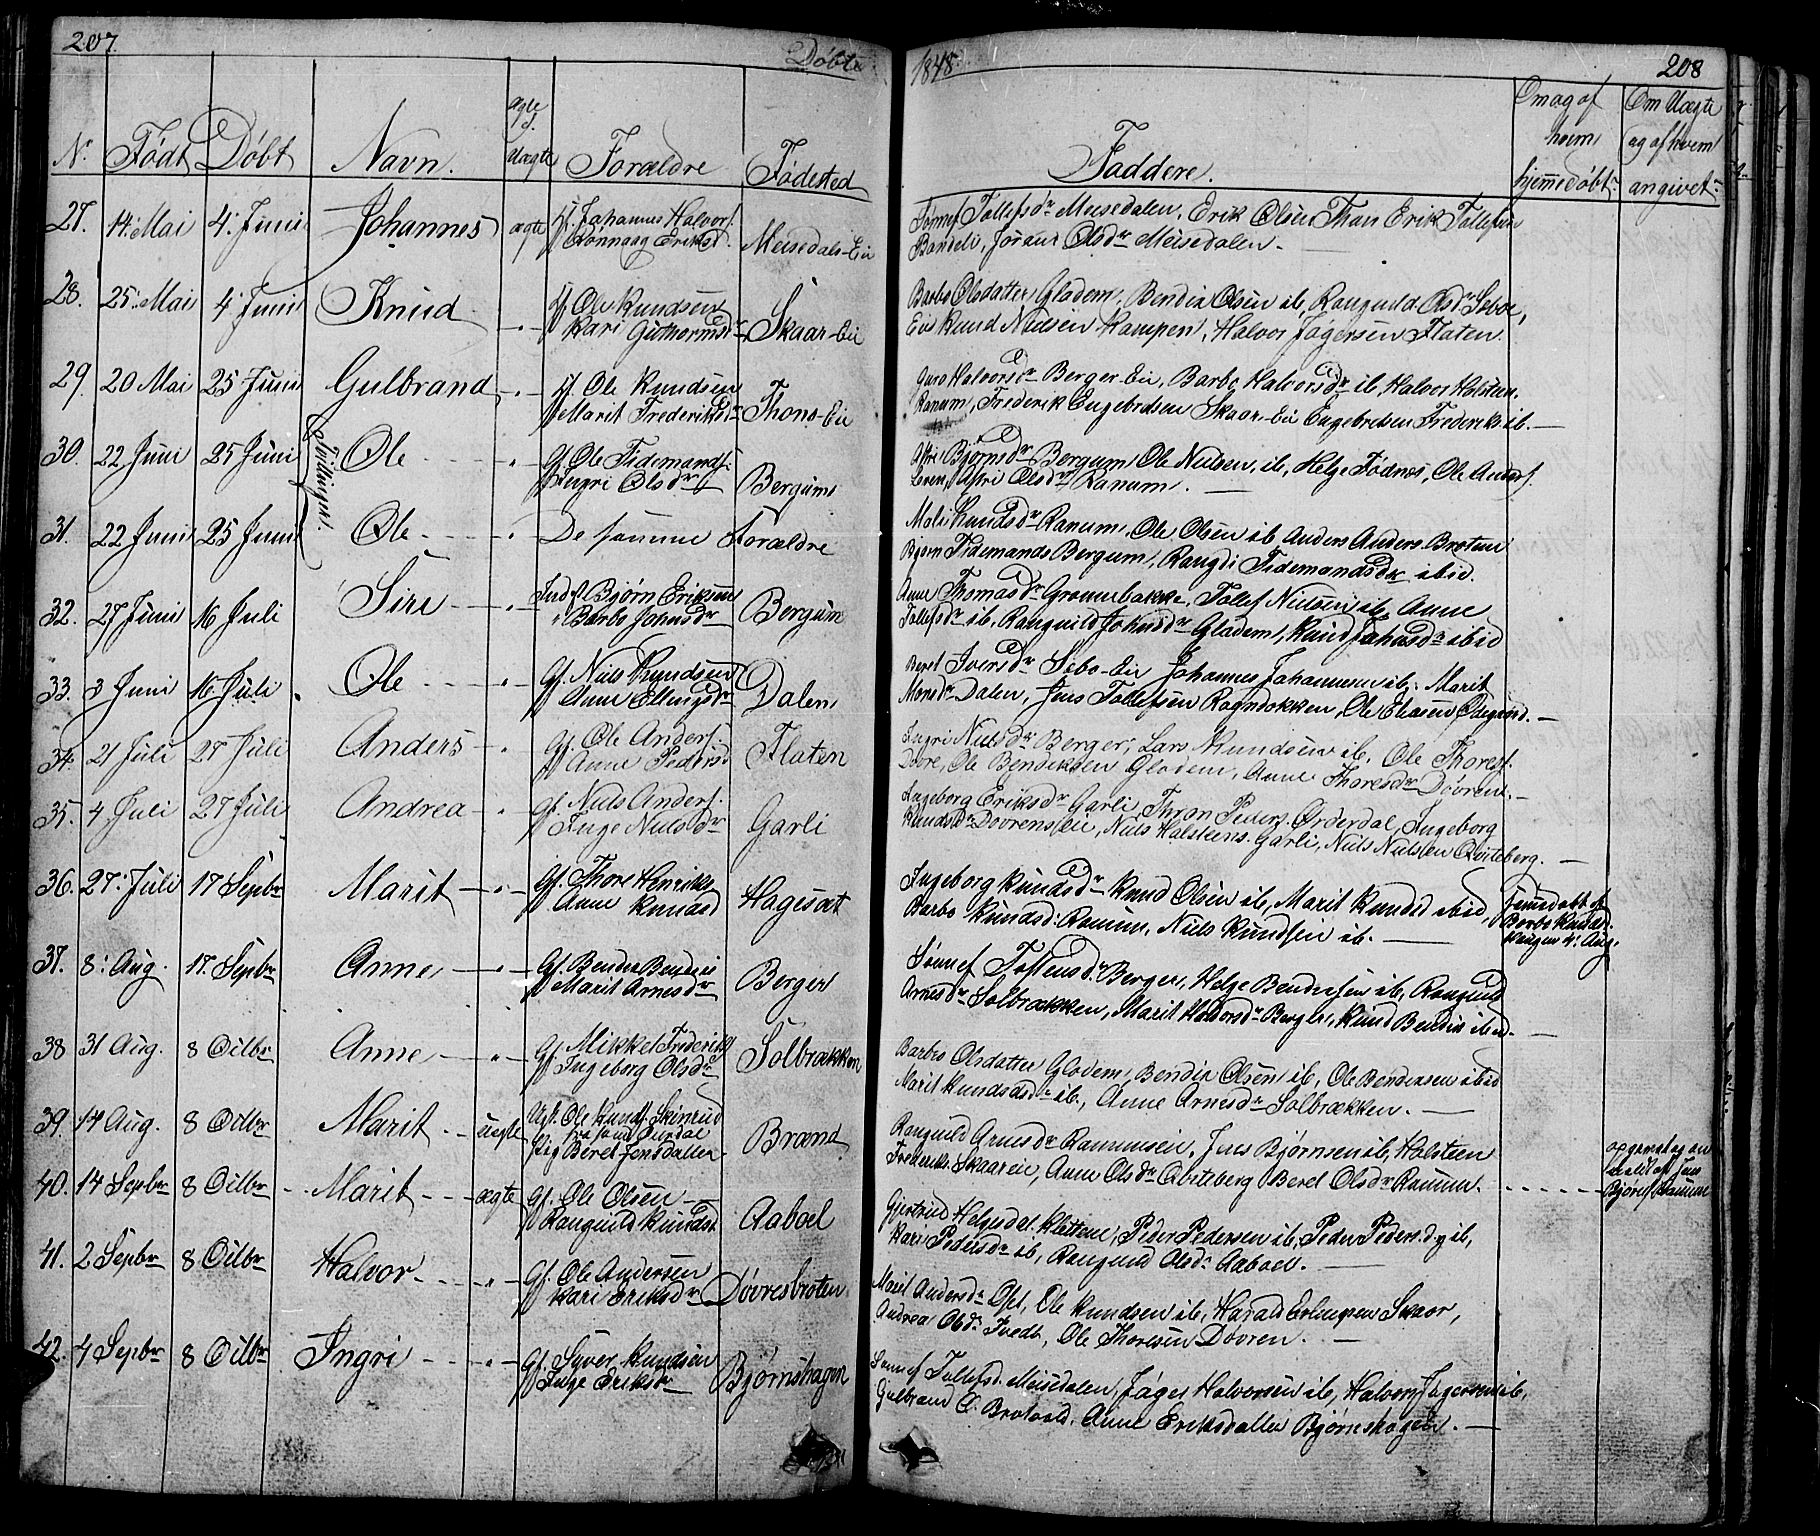 207.
Døbte
1848.
208
N.
Født
Døbt
Navn.
Forældre
Fødested
Faddere.
Om og af
hvem
hjemmedøbt
Om Uægte
og af hvem
angivet
27. 14. Mai 4. Juni Johannes ægte Johannes Halvors.
Ronnaug Eriksd. Meisedals-Eie
Tollefsdr Meisedalen, Erik Olsen Thon Erik Tollefsen
Bandeli, Jøran Olsdr Meisedalen.
28. 25. Mai 4 Juni Knud Gf. Ole Knudsen
Kari Guthormsdr Skaar-Eie
Barbo Olsdatter Gladem, Bendix Olsen ib, Ranguild Olsdr Sebo,
Eie Knud Nielsen Kampen, Halvor Jøgersen Flaten.
29. 20 Mai 25 Juni Gulbrand Gf. Ole Knudsen
Marit Frederiksdr Thons-Eie
Guro Halvorsdr Berger Eie, Barbo Halvorsdr ib, Halvor Halsten.
Ranum, Frederik Engebretsen Skaar-Eie Engebretsen Frederiks ib.
30. 22 Juni 25 Juni Tvillinger. Ole Gf. Ole Tidemands.
Ingri Olsdr Bergum
Bjørnsdr Bergum, Ole Nielsen, ib, Helge Fødnes, Ole Anders.
Astri Olsdr Ranum.
31. 22 Juni 25 Juni Ole De samme Forældre
Knudsdr Ranum, Ole Olsen ib Anders Anders. Broten
Bjørn Tidemands Bergum, Rangdi Tidemandsdr ibid.
32. 27 Juni 16 Juli Siri Inds. Bjørn Eriksen
Barbo Johnsdr Bergum
Anne Thomasdr Grønnebakke, Tollef Nielsen ib, Anne
Tollefsdr ib, Ranguild Johnsdr Gladem, Knud Johnsdr ibid
33. 3 Juni 16 Juli Ole Gf. Niels Knudsen
Anne Ellingsdr Dalen
Beret Iversdr Sebo-Eie Johannes Johannesen ib, Marit
Monsdr Dalen, Jens Tollefsen Rogndokken, Ole Eliasen Ødegaard.
34. 21 Juli 27 Juli Anders Gf. Ole Anders.
Anne Pedersd Flaten
Ingri Nielsdr Berger, Lars Knudsen ib, Ole Thores.
Dovre, Ole Bendiksen Gladem, Anne Thoresdr Døvren.
35. 4. Juli 27 Juli Andrea Gf. Niels Anders.
Inge Nielsdr Garli
Ingeborg Eriksdr Garli, Thron Peders. Ørderdal, Ingeborg
Knudsdr Døvrens Eie, Niels Halsteens. Garli, Niels Nielsen Qviteberg.
36. 27. Juli 17 Sepbr Marit Gf. Thore Henriks
Anne Knudsd Hagesæt
Ingeborg Knudsdr Knud Olsen ib, Marit Knudsd ibid,
Barbo Knudsd. Ranum, Niels Knudsen ib.
hjemmedøbt af
Barbo Knudsd.
4. Aug.
37. 8. Aug. 17. Sepbr Anne Gf. Bendix Bendix
Marit Arnesdr Berger
Sønnef Tostensdr Berger, Helge Bendixsen ib, Ranguild
Arnesdr Solbrækken, Marit Halvorsdr Berger, Knud Bendix ibid.
38 31 Aug. 8 Octbr Anne Gf. Mikkel Frederiks
Ingeborg Olsdr Solbrækken
Barbro Olsdatter Gladem, Bendix Olsen ib, Ole Bendixsen ibid
Marit Knudsdr ib, Anne Arnesdr Solbrækken.
39. 14 Aug. 8 Octbr Marit uægte Ugf. Ole Knuds. Skinrud
Pig. Beret Jensdatter Brænd
Ranguild Arnesdr Ranumseie, Jens Bjørnsen ib, Halsteen
Frederiks. Skaareie, Anne Olsdr Qviteberg Beret Olsdr Ranum.
opgivet og an
meldt af Jens
Bjørns. Ranum
40. 14 Sepbr 8 Octbr Marit ægte Gf. Ole Olsen
Ranguild Knudsd. Aabøel
Gjertrud Helgesdat. Kløttene, Peder Pedersen ib, Peder Peders. d.y ib,
Kari Pedersdr ib, Ranguild Olsdr Aabøel.
41. 2 Sepbr 8 Octbr Halvor Gf. Ole Andersen
Kari Eriksdr Døvresbroten
Marit Andersdr Ofst, Ole Knudsen ib, Harald Erlingsen Skaar,
Andrea Olsdr Tvedt, Ole Thoresen Døvren.
42. 4 Sepbr 8 Octbr Ingri Gf. Syver Knudsen
Inge Eriksdr Bjørnshagen
Sønnef Tollefsd. Meisedalen, Jøger Halvorsen ib, Halvor Jøgersen ib,
Gulbrand O. Brotvold, Anne Eriksdatter Bjørnshagen.